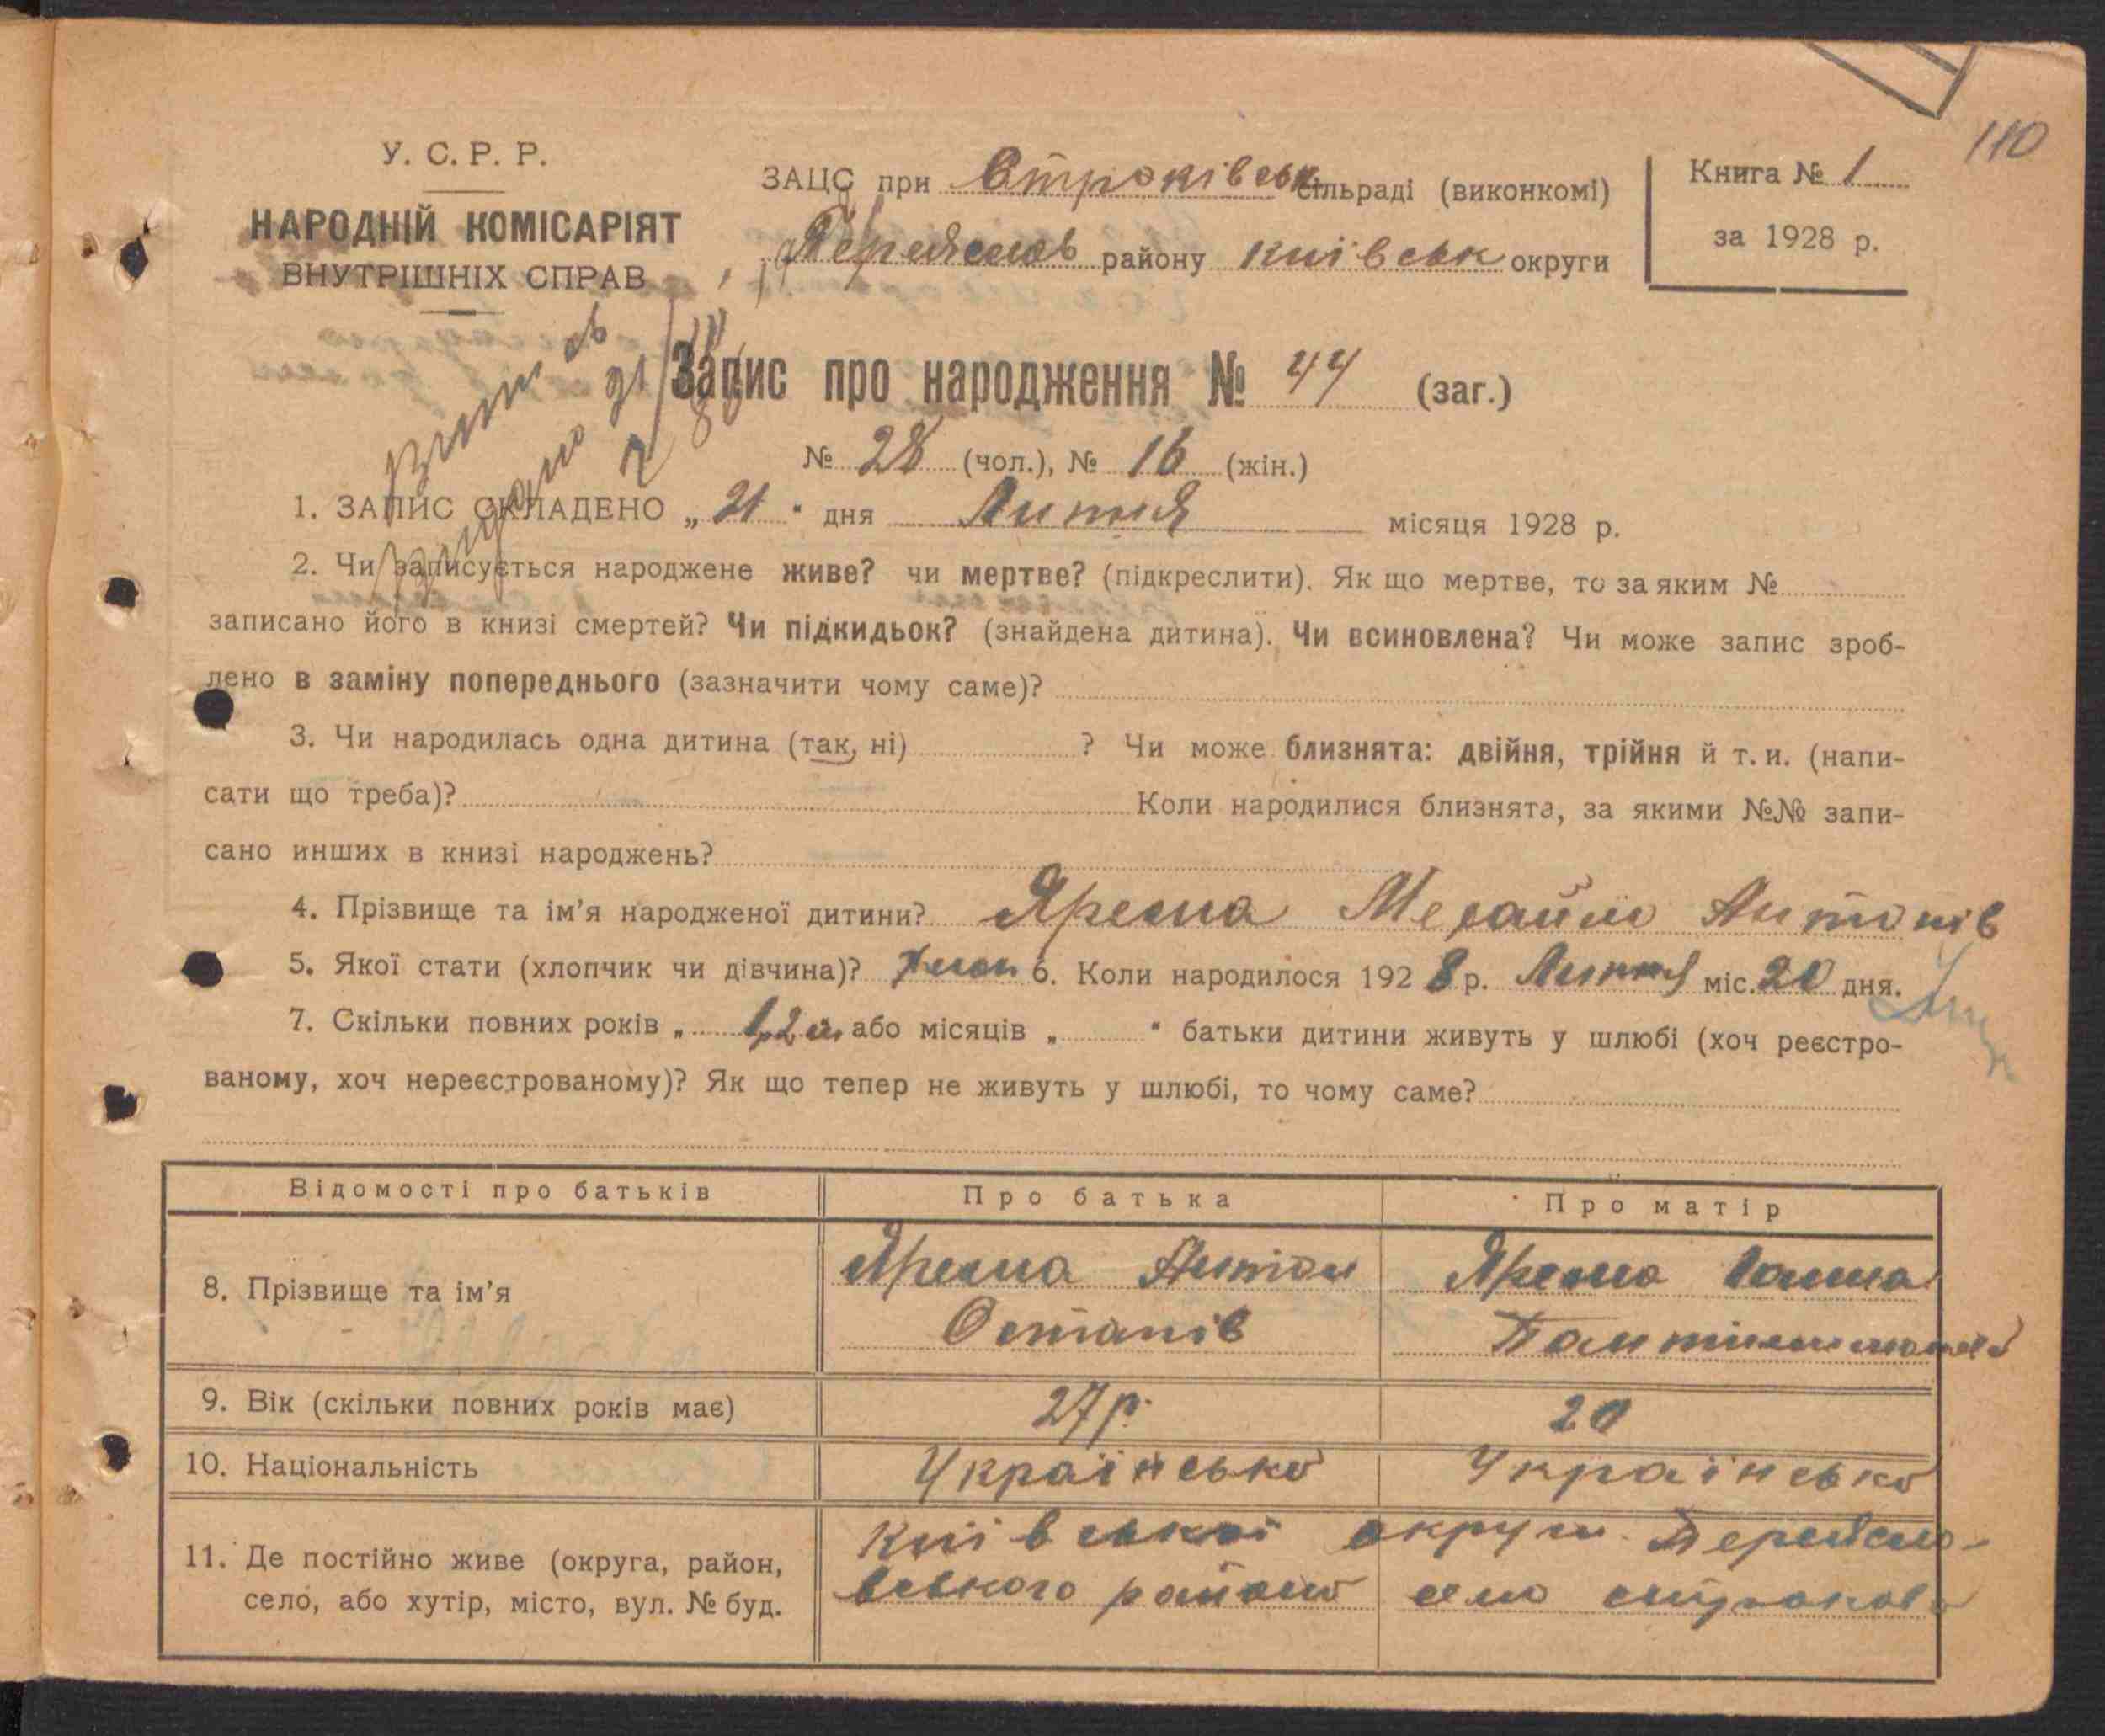 110
У. С. Р. Р.
НАРОДНІЙ КОМІСАРІЯТ
ВНУТРІШНІХ СПРАВ
ЗАЦС при Строківськ сільраді (виконкомі)
Переяслов району київськ округи
Книга № 1
за 1928 р.
Запис про народження № 44 (заг.)
№ 28 (чол.), № 16 (жін.)
1. ЗАПИС СКЛАДЕНО „ 21 “ дня Липня місяця 1928 р.
2. Чи записується народжене живе? чи мертве? (підкреслити). Як що мертве, то за яким №
записано його в книзі смертей? Чи підкидьок? (знайдена дитина). Чи всиновлена? Чи може запис зроб-
лено в заміну попереднього (зазначити чому саме)?
3. Чи народилась одна дитина (так, ні) ? Чи може близнята: двійня, трійня й т. и. (напи-
сати що треба)? Коли народилися близнята, за якими №№ запи-
сано инших в книзі народжень?
4. Прізвище та ім’я народженої дитини? Ярема Мехайло Антонів
5. Якої стати (хлопчик чи дівчина)? Хлоп 6. Коли народилося 192 8 р. Липня міс. 20 дня.
7. Скільки повних років „ або місяців „ “ батьки дитини живуть у шлюбі (хоч реєстро-
ваному, хоч нереєстрованому)? Як що тепер не живуть у шлюбі, то чому саме?
Відомості про батьків Про батька Про матір
8. Прізвище та ім’я Ярема Антон Ярема Ганна
Остапів
9. Вік (скільки повних років має) 27 р. 20
10. Національність Українсько Українсько
11. Де постійно живе (округа, район, київської округи Переясло-
село, або хутір, місто, вул. № буд. вського району село строкова